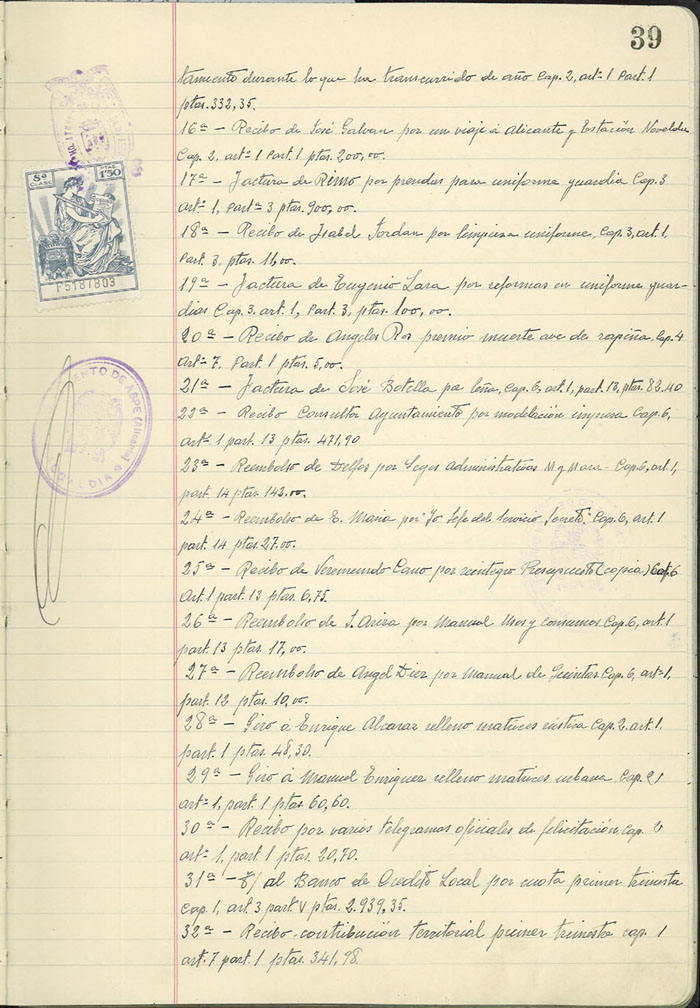 39
tamiento durante lo que ha transcurrido de año Cap. 2, artº 1 Part. 1
ptas. 332,35.
16ª - Recibo de José Galvan por un viaje á Alicante y Estación Novelda
Cap. 2, artº 1 Part. 1 ptas. 200,00.
17ª - Factura de Rimo por prendas para uniforme guardia Cap. 3
artº 1, Partª 3 ptas. 900,00.
18ª - Recibo de Isabel Jordan por limpieza uniforme, Cap. 3, art. 1,
Part. 3, ptas. 11,00.
19ª - Factura de Eugenio Lara por reformas en uniforme guar-
dias Cap. 3. art. 1, Part. 3, ptas. 100,00.
20ª - Recibo de Angeles premio muerte ave de rapiña, Cap. 4
Artº 7, Part. 1 ptas. 5,00.
21ª - Factura de José Botella por leña, Cap. 6, art. 1, part. 13, ptas. 82.40
22ª - Recibo Consultor Ayuntamiento por modelación impresa Cap. 6,
artº 1 part. 13 ptas. 471,90
23ª - Reembolso de Delfos por Leyes Administrativas M y Cap. 6, art. 1,
part. 14 ptas. 142,00.
24ª - Reembolso de E. Maria por "Yo Jefe del Servicio Secreto". Cap. 6, art. 1
part. 14 ptas. 27.00.
25ª - Recibo de Veremundo Cano por reintegro Presupuesto (copia) Cap. 6
Art. 1 part. 13 ptas. 6,75.
26ª - Reembolso de por Manual Usos y consumos Cap. 6, art. 1
part. 13 ptas. 17,00.
27ª - Reembolso de Angel Diez por Manual de Quintas. Cap. 6, artº 1,
part. 12 ptas. 10,00.
28ª - Giro á Enrique Alcaraz relleno matrices rústica Cap. 2. art. 1.
part. 1 ptas. 48,30.
29ª - Giro á Manuel Enriquez relleno matrices urbana Cap. 2,
artº 1, part. 1 ptas. 60,60.
30ª - Recibo por varios telegramas oficiales de felicitación Cap. 2
artº 1, part. 1 ptas. 20,70.
31ª - al Banco de Credito Local por cuota primer trimestre
Cap. 1, art. 3 part. V ptas. 2.939,35.
32ª - Recibo contribución territorial primer trimestre cap. 1
art. 7 part. 1 ptas. 341,98.
8ª CLASE
PTAS. 1'50
F5187803
AYUNTAMIENTO DE ASPE (Alicante)
ALCALDIA